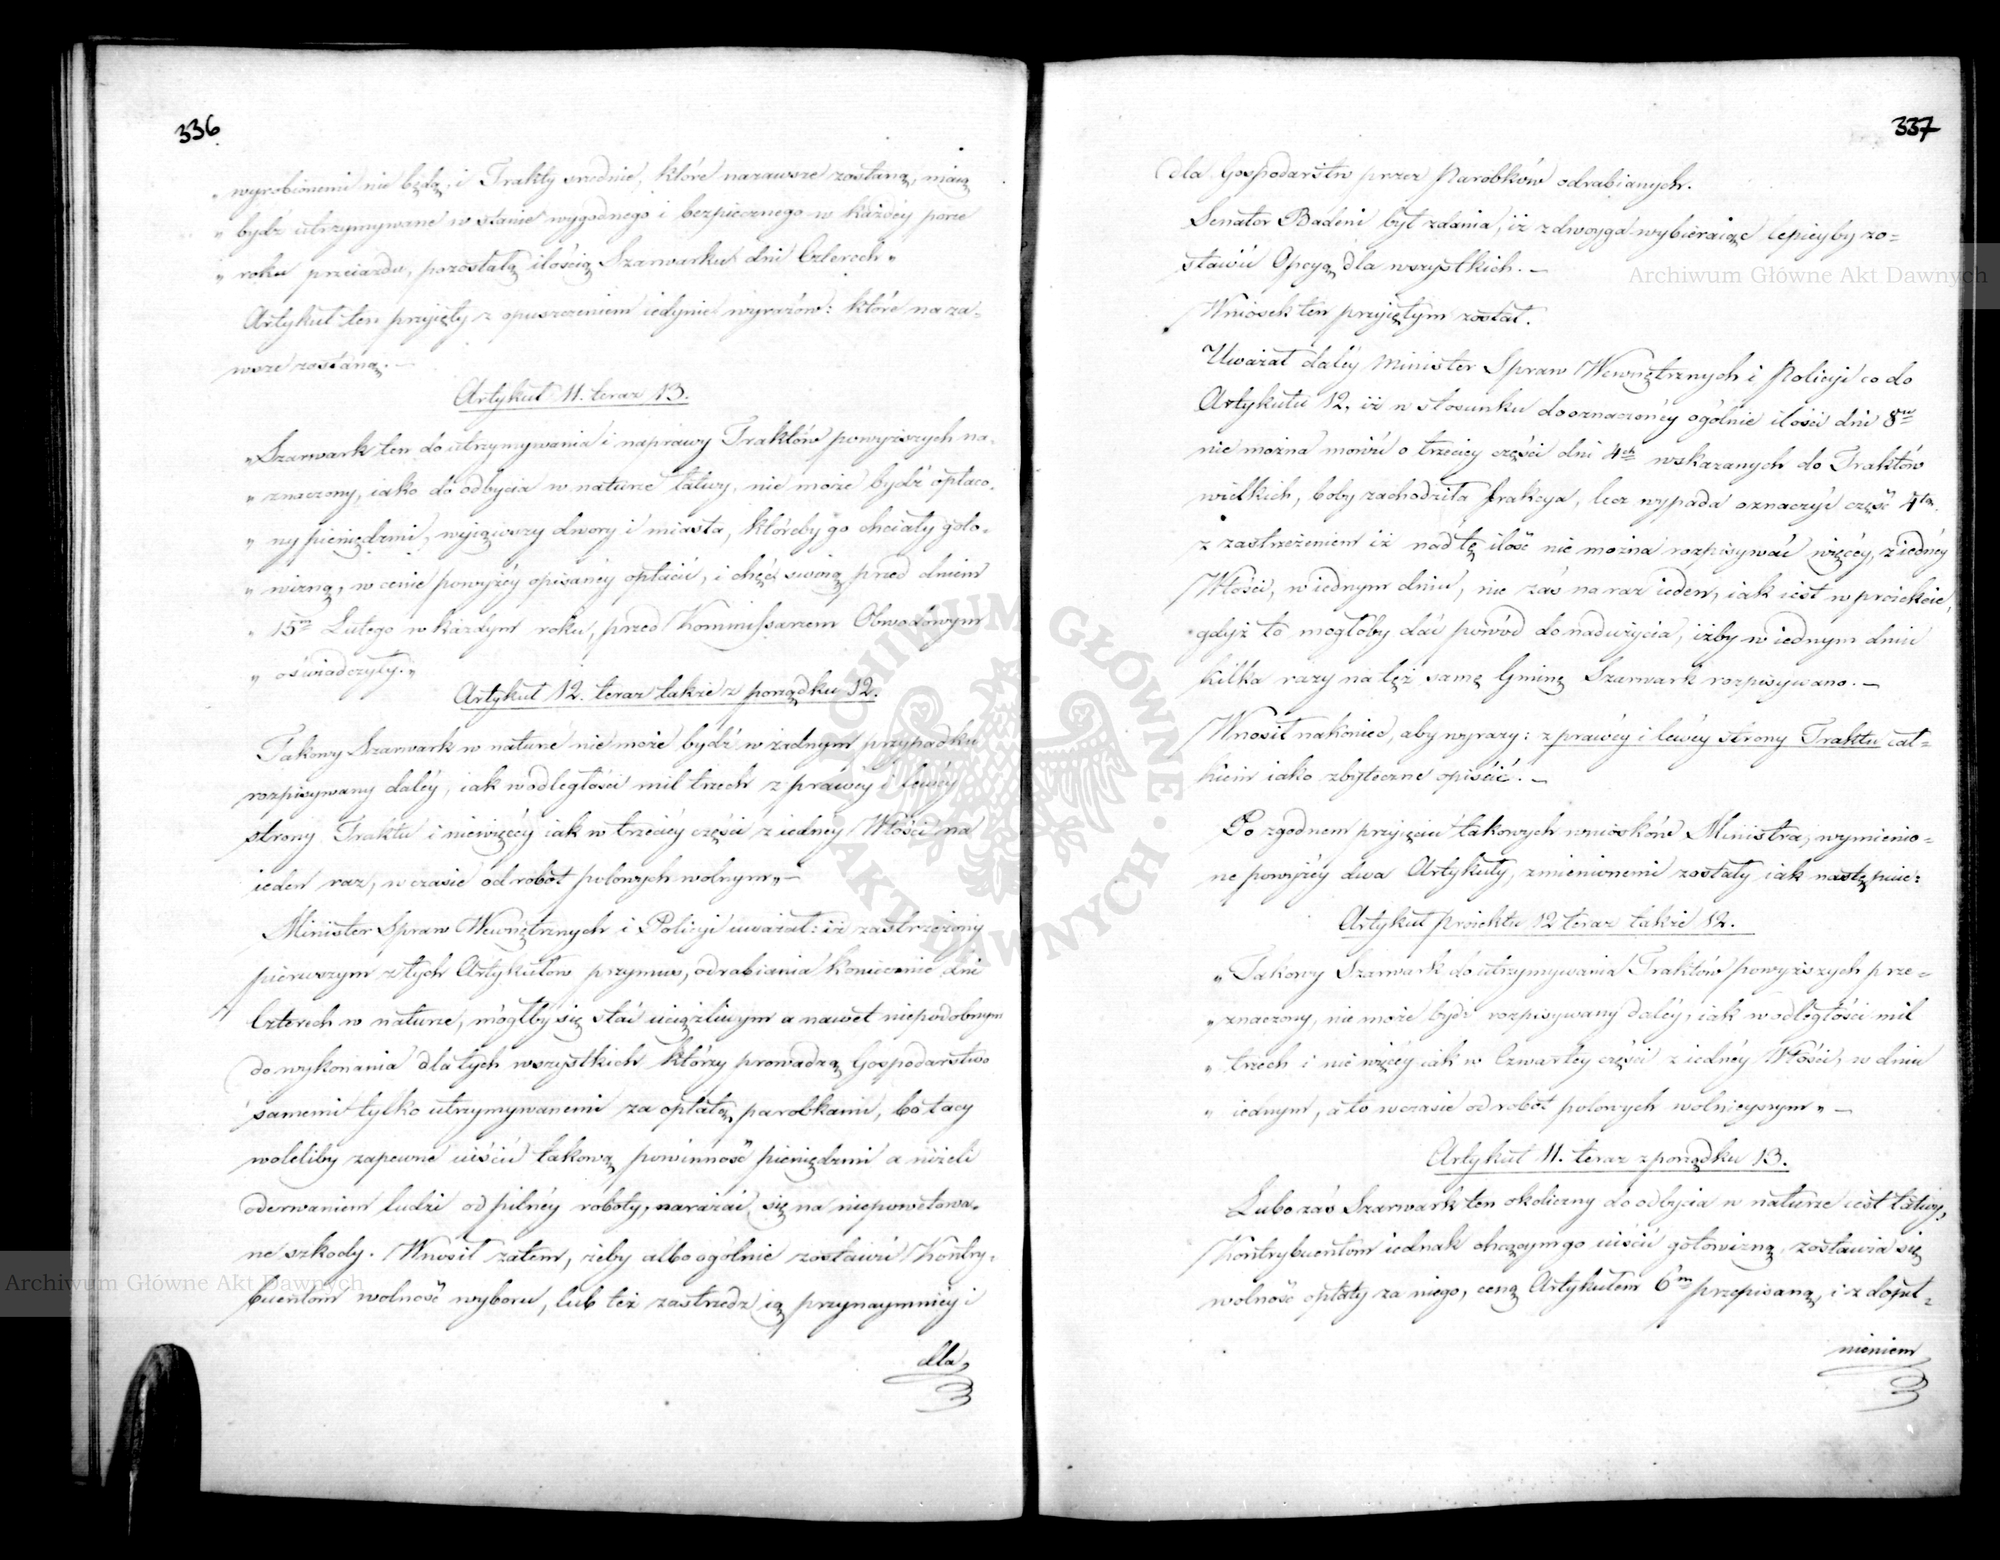 336
„ wyrobionemi nie będą, i Trakty srednie, które nazawsze zostaną, maią
„ bydź utrzymywane w stanie wygodnego i bezpiecznego w każdéy porze
„ roku przeiazdu, pozostałą ilością Szarwarku dni Czterech „
Artykuł ten przyięty z opuszczeniem iedynie wyrazów: które naza-
wsze zostaną. —
Artykuł 11. teraz 13.
„ Szarwark ten do utrzymywania i naprawy Traktów powyższych na-
„ znaczony, iako do odbycia w naturze łatwy, nie może bydź opłaco-
„ ny pieniędzmi, wyiąwszy dwory i miasta, któreby go chciały goto-
„ wizną, w cenie powyżéy opisanéy opłacić, i chęć swoią przed dniem
„ 15m Lutego w każdym roku, przed Kommissarzem Obwodowym
„ oświadczyły. „
Artykuł 12. teraz także z porządku 12.
Takowy Szarwark w naturze nie może bydź w żadnym przypadku
rozpisywany daléy, iak w odległości mil trzech z prawéy i lewéy
strony Traktu i niewięcéy iak w trzeciéy części z iednéy Włości na
ieden raz, w czasie od robót polowych wolnym „ —
Minister Spraw Wewnętrznych i Policyi uważał: iż zastrzeżony
pierwszym z tych Artykułów przymus, odrabiania koniecznie dni
Czterech w naturze, mógłby się stać uciążliwym a nawet niepodobnym
do wykonania dla tych wszystkich którzy prowadzą Gospodarstwo
samemi tylko utrzymywanemi za opłatą parobkami, bo tacy
woleliby zapewne uiścić takową powinność pieniędzmi a niżeli
oderwaniem ludzi od pilnéy roboty, narażać się na niepowetowa-
ne szkody. Wnosił zatem, żeby albo ogólnie zostawić Kontry-
buentom wolność wyboru, lub też zastrzedz ią przynaymniéy i
dla
337
dla Gospodarstw przez Parobków odrabianych.
Senator Badeni był zdania, iż z dwoyga wybieraiąc lepiéyby zo-
stawić Opcyą dla wszystkich. —
Wniosek ten przyiętym został.
Uważał daléy Minister Spraw Wewnętrznych i Policyi co do
Artykułu 12, iż w stosunku do oznaczonéy ogólnie ilości dni 8miu
nie można mówić o trzeciéy części dni 4ch wskazanych do Traktów
wielkich, boby zachodziła frakcya, lecz wypada oznaczyć część 4tą,
z zastrzeżeniem iż nad tę ilość nie można rozpisywać więcéy, z iednéy
Włości, w iednym dniu, nie zaś na raz ieden, iak iest w proiekcie,
gdyż to mogłoby dać powód do nadużycia, iżby w iednym dniu
kilka razy na tęż samę Gminę Szarwark rozpisywano. —
Wnosił nakoniec, aby wyrazy: z prawéy i lewéy strony Traktu cał-
kiem iako zbyteczne opuścić. —
Po zgodnem przyięciu takowych wniosków Ministra, wymienio-
ne powyżéy dwa Artykuły, zmienionemi zostały iak następuie:
Artykuł proiektu 12 teraz także 12.
„ Takowy Szarwark do utrzymywania Traktów powyższych prze-
„ znaczony, nie może bydź rozpisywany daléy, iak w odległości mil
„ trzech i nie więcéy iak w Czwartéy części z iednéy Włości, w dniu
„ iednym, a to w czasie od robót polowych wolnieyszym „ —
Artykuł 11. teraz z porządku 13.
Lubo zaś Szarwark ten okoliczny do odbycia w naturze iest łatwy,
Kontrybuentom iednak chcącym go uiścić gotowizną, zostawia się
wolność opłaty za niego, ceną Artykułem 6m przepisaną, i z dopeł-
nieniem
Archiwum Główne Akt Dawnych
Archiwum Główne Akt Dawnych
ARCHIWUM GŁÓWNE AKT DAWNYCH